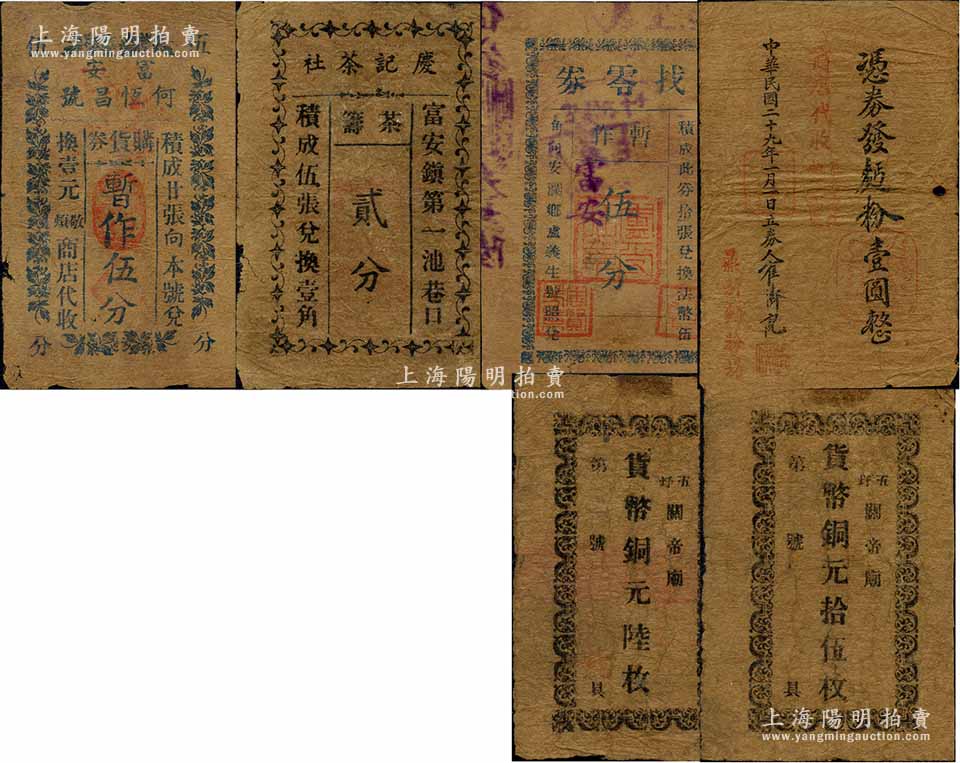 上海陽明拍賣
www.yangmingauction.com
伍
富安
何恆昌號
購貨券
積成廿張向本號兌
暫作伍分
換壹元敬煩商店代收
分
分
慶記茶社
茶籌
富安鎮第一池巷口
貳分
積成伍張兌換壹角
找零券
暫作
積成此券拾張兌換法幣伍
伍分
富安
憑券發麪粉壹圓整
中華民國二十九年一月
上海陽明拍賣
www.yangmingauction.com
五圩關帝廟
貨幣銅元陸枚
第號
具
五圩關帝廟
貨幣銅元拾伍枚
第號
具
上海陽明拍賣
www.yangmingauction.com